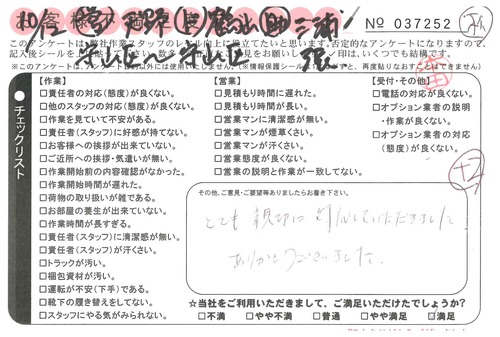 No 037252
このアンケートは弊社作業スタッフのレベル向上に役立てたいと思います。否定的なアンケートになりますので、
【作業】
□責任者の対応(態度)が良くない。
□他のスタッフの対応が良くない。
□作業を見ていて不安がある。
□責任者(スタッフ)に好感が持てない。
□お客様への挨拶が出来ていない。
□ご近所への挨拶・気遣いが無い。
□作業開始前の内容確認がなかった。
□作業開始時間が遅れた。
□荷物の取り扱いが雑である。
□お部屋の養生が出来ていない。
□作業時間が長すぎる。
□責任者(スタッフ)に清潔感が無い。
□責任者(スタッフ)が汗くさい。
□トラックが汚い。
□梱包資材が汚い。
□運転が不安(下手)である。
□靴下の履き替えをしていない。
□スタッフにやる気がみられない。
【営業】
□見積もり時間に遅れた。
□見積もり時間が長い。
□営業マンに清潔感が無い。
□営業マンが煙草くさい。
□営業マンが汗くさい。
□営業態度が良くない。
□営業の説明と作業が一致してない。
【受付・その他】
□電話の対応が良くない。
□オプション業者の説明
・作業が良くない。
□オプション業者の対応
(態度)が良くない。
チェックリスト
その他、ご意見・ご要望等ありましたらお書き下さい。
とても親切に対応していただきました
ありがとうございました。
☆当社をご利用いただきまして、ご満足いただけたでしょうか?
□不満 □やや不満 □普通 □やや満足 ☑満足